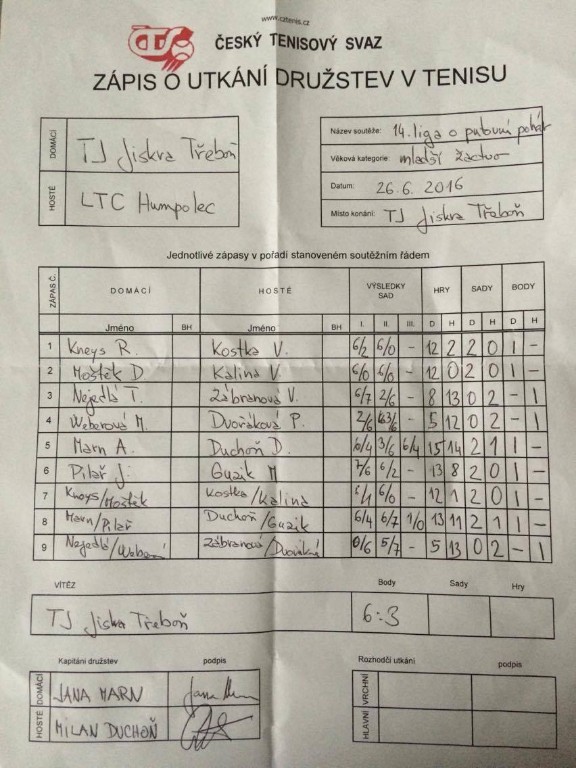 www.cztenis.cz
ČTS
ČESKÝ TENISOVÝ SVAZ
ZÁPIS O UTKÁNÍ DRUŽSTEV V TENISU
DOMÁCÍ TJ Jiskra Třeboň
HOSTÉ LTC Humpolec
Název soutěže: 14. liga o putovní pohár
Věková kategorie: mladší žactvo
Datum: 26.6. 2016
Místo konání: TJ Jiskra Třeboň
Jednotlivé zápasy v pořadí stanoveném soutěžním řádem
ZÁPAS Č. DOMÁCÍ HOSTÉ VÝSLEDKY SAD HRY SADY BODY
Jméno BH Jméno BH I. II. III. D H D H D H
1 Kneys R. Kostka V. 6/2 6/0 - 12 2 2 0 1 -
2 Moštěk D. Kalina V. 6/0 6/0 - 12 0 2 0 1 -
3 Nejedlá T. Zábranová V. 6/7 2/6 - 8 13 0 2 - 1
4 Weberová M. Dvořáková P. 2/6 3/6 - 5 12 0 2 - 1
5 Marn A. Duchoň D. 6/4 3/6 6/4 15 14 2 1 1 -
6 Pilař J. Guzik M 7/6 6/2 - 13 8 2 0 1 -
7 Kneys/Moštěk Kostka/Kalina 6/1 6/0 - 12 1 2 0 1 -
8 Marn/Pilař Duchoň/Guzik 6/4 6/7 1/0 13 11 2 1 1 -
9 Nejedlá/ Zábranová/ 0/6 5/7 - 5 13 0 2 - 1
VÍTĚZ Body Sady Hry
TJ Jiskra Třeboň 6:3
Kapitáni družstev podpis
DOMÁCÍ JANA MARN
HOSTÉ MILAN DUCHOŇ
Rozhodčí utkání podpis
VRCHNÍ
HLAVNÍ